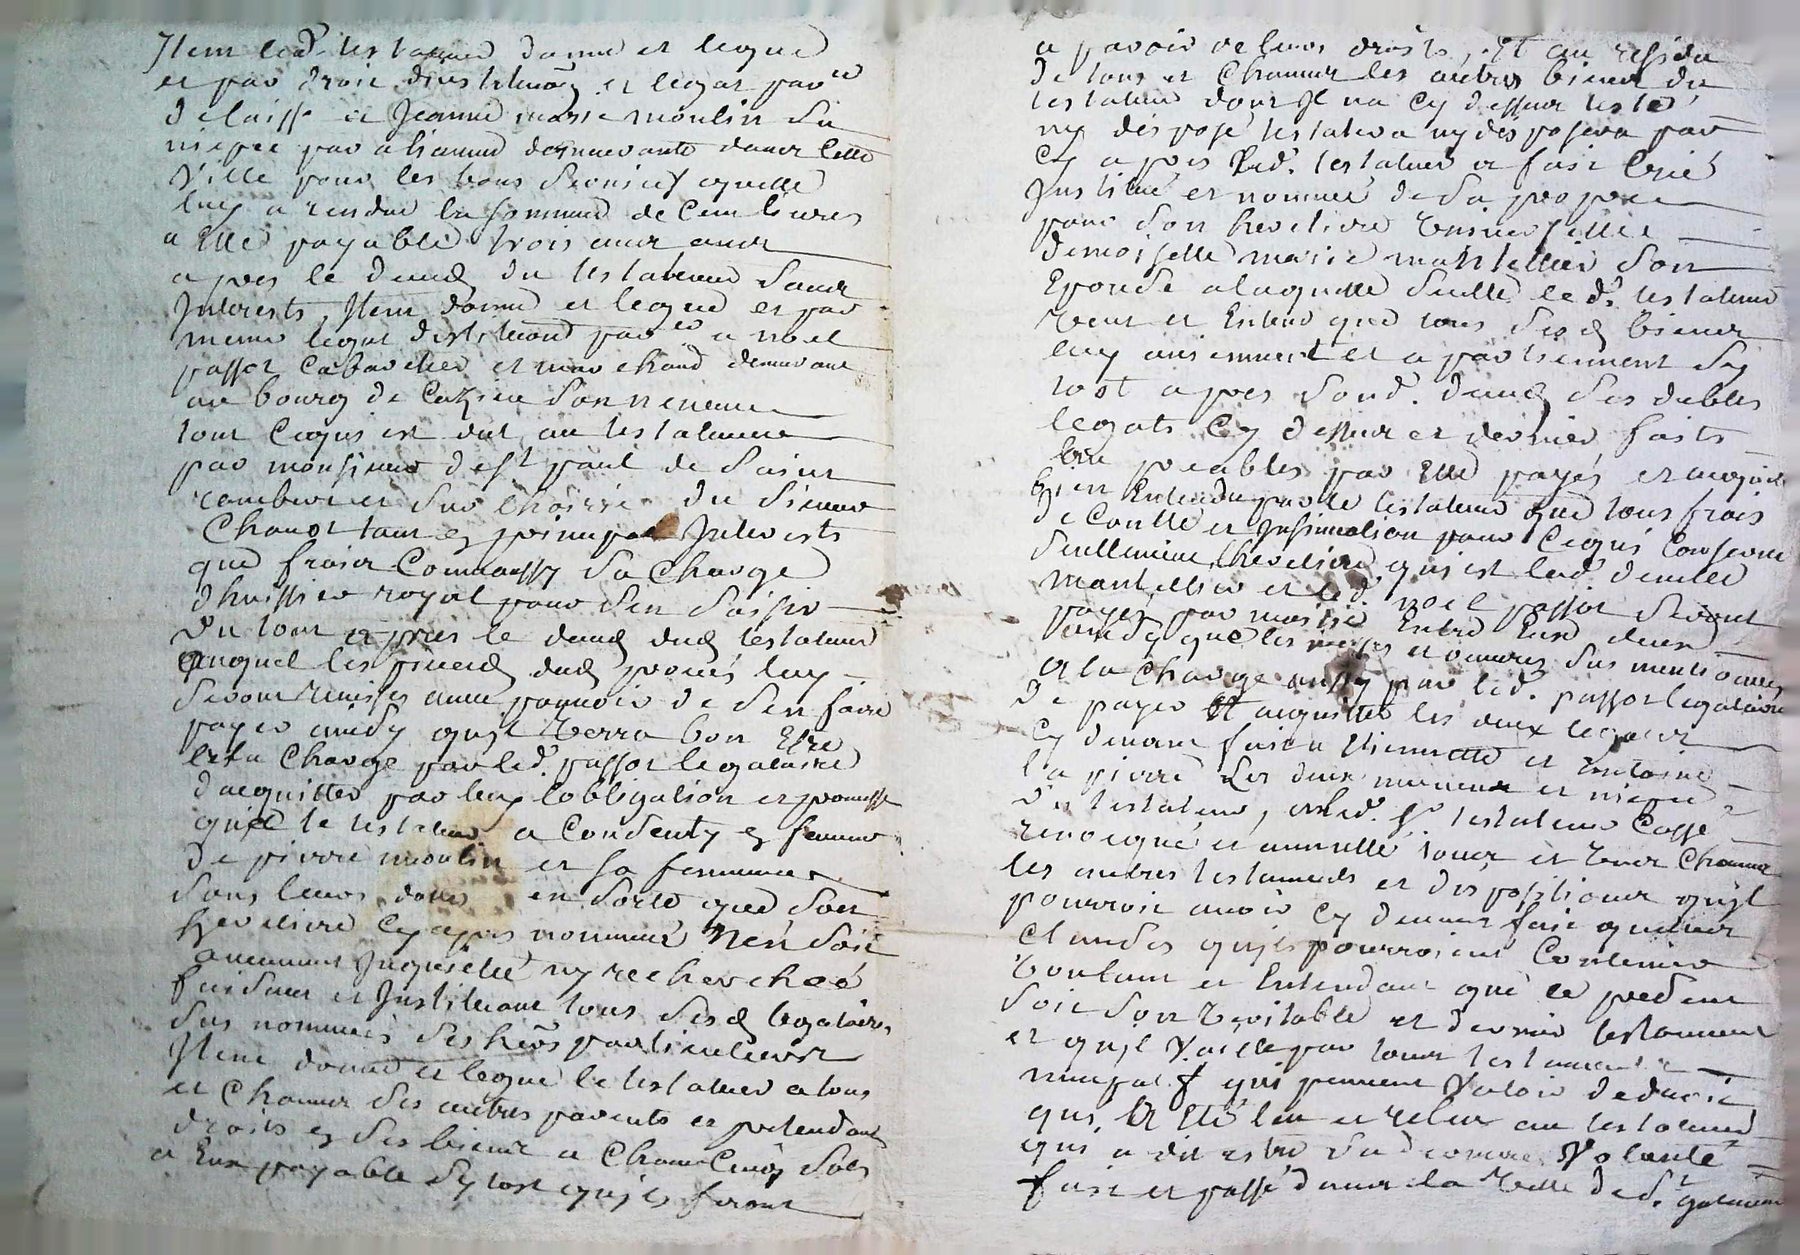 Item led. testateur donne et legue
et par droit d'institution et legat par.re
delaisse a Jeanne marie moulin sa
niepce par aliance demeurante dans cette
Ville pour les bons services quelle
luy a rendue la somme de Cent livres
a Elle payable trois ans
apres le deceds du testateur sans
Interests, Item donne et legue et par
meme legat d'institution par.re a noel
passot Cabaretier et marchand demeurant
au bourg de
tout ce qui est dut au testateur
par monsieur de st paul de saint
rambert et sur l'hoirie du sieur
Chanot tant en principal Interests
que frais Comme aussy sa Charge
dhuissier royal pour sen saisir
du tout apres le deced dud testateur
auquel les pieces dud proces luy
seront remises avec pouvoir de sen faire
payer ainsy qujl verra bon Estre
et a la Charge par led. passot legataire
dacquitter par luy lobbligation et promesse
que le testateur a Consenty en faveur
de pierre moulin et sa femme
dans leurs dous en sorte que son
heretiere cy apres nommee n'en soit
aucunement Inquietée ny recherchée
faisant et Instituant tous sesd legataires
sus nommés ses heos particuliers
Item donne et legue le testateur a tous
et Chacuns ses autres parents et pretendants
droits en ses biens a Chacun Cinq sols
a Eux payable sy tost qujls feront
a pavoir de leurs droits, Et au residu
de tous et Chacuns les autres biens du
testateur dont Jl na cy dessus testé
ny disposé testatera ny disposera par
Cy apres led. testateur a fait Crée
Institué et nommé de sa propre
pour son heretiere universelle
demoiselle marie mantellier son
Epouse a laquelle seulle led. testateur
veut et Entend que tous sesd biens
luy aviennent et apartiennent sy
tost apres sond. deced ses debtes
legats cy dessus et dernier faits
prealables par Elle payés et acquittés
bien Entendu par le testateur que tous frais
de Contlle et Insinuation pour ce qui Conserne
seullement lheretiere qui est lad. demlle
mantellier et led. noel passot seront
payés par moitié Entre Eux deux
tandy que les messes et oeuvres sus mentionnes
a la Charge aussy par led. passot legataire
de payer Et acquitter les deux legats
cy devant fait a Etiennette et Antoine
la pierre les deux neveux et niepce
du testateur, et led. sr testateur Casse
revoqué et annullé tous et un Chacun
les autres testaments et dispositions qujl
pourroit avoir cy devant fait quelques
clauses qujls pourroient Contenir
voulant et Entendant que le present
soit son veritable et dernier testament
et qujl vaille par tous testaments
nuncupatif qui peuvent valoir de droit
qui a Eté leu et releu au testateur
qui a dit estre sa derniere Volonté
fait et passé dans la Ville de St. galmier